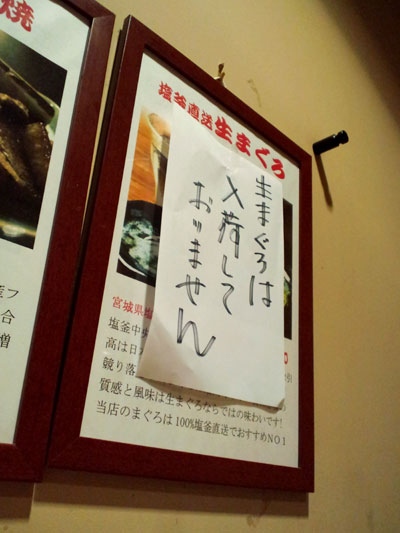 焼
釜フ
合
増
塩釜直送生まぐろ
生まぐろは
入荷して
おりません
宮城県塩
塩釜中央
高は日
競り落
質感と風味は生まぐろならではの味わいです!
当店のまぐろは100%塩釜直送でおすすめNO1